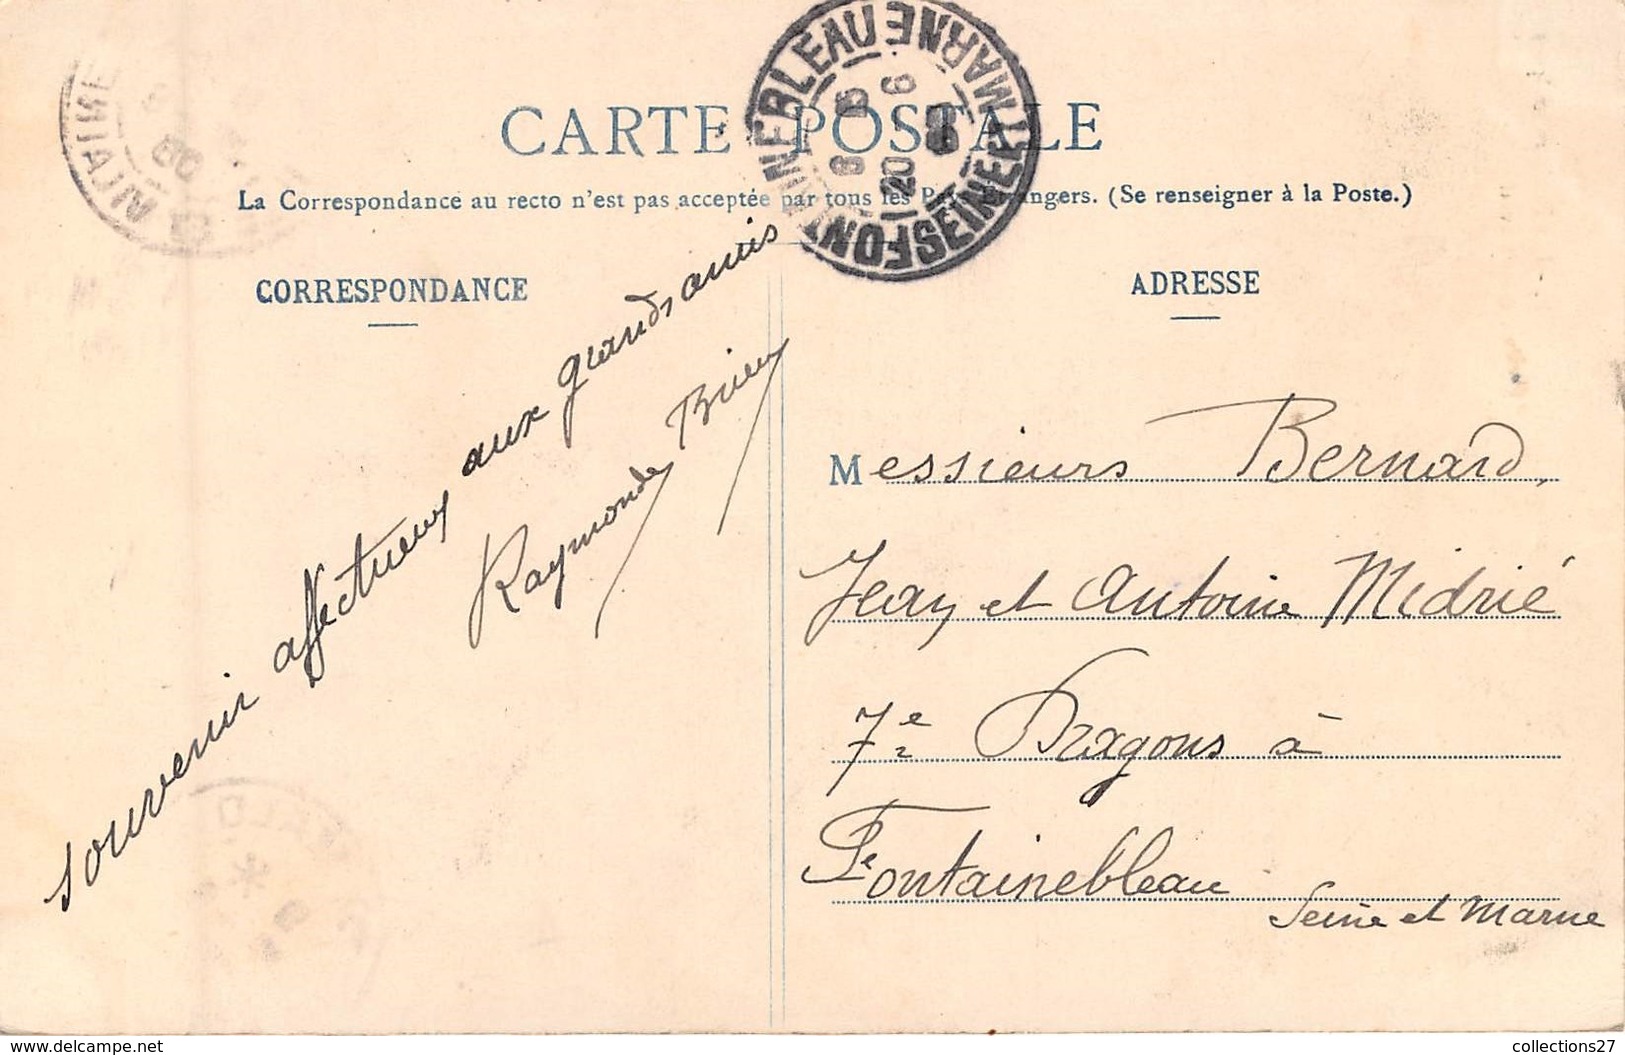 CARTE POSTALE
La Correspondance au recto n'est pas acceptée par tous les Pays Étrangers. (Se renseigner à la Poste.)
FONTAINEBLEAU SEINE ET MARNE
8 15
20 9
08
MAIRE
CORRESPONDANCE
souvenir affectueux aux grands amis
Raymonde
ADRESSE
Messieurs Bernard,
Jean et Antoine Midrié
7e Dragons à
Fontainebleau
Seine et Marne
collections27